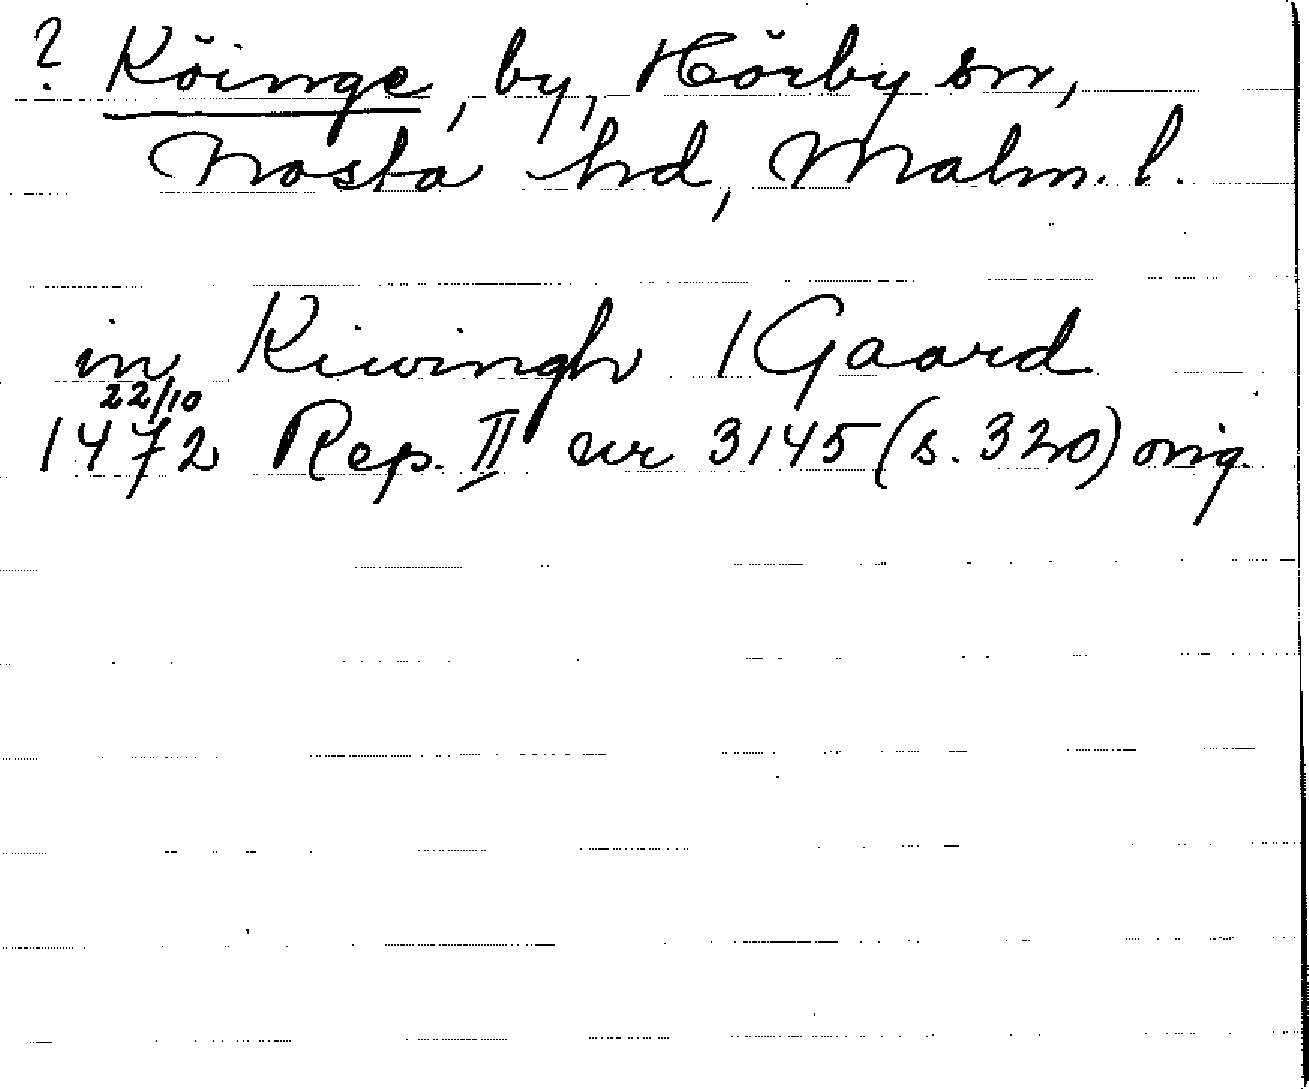 ? Köinge, by, Hörby sn,
Frosta hd, Malm. l.
in Kiwingh 1 Gaard
22/10
1472 Rep. II nr 3145 (s. 320) orig.